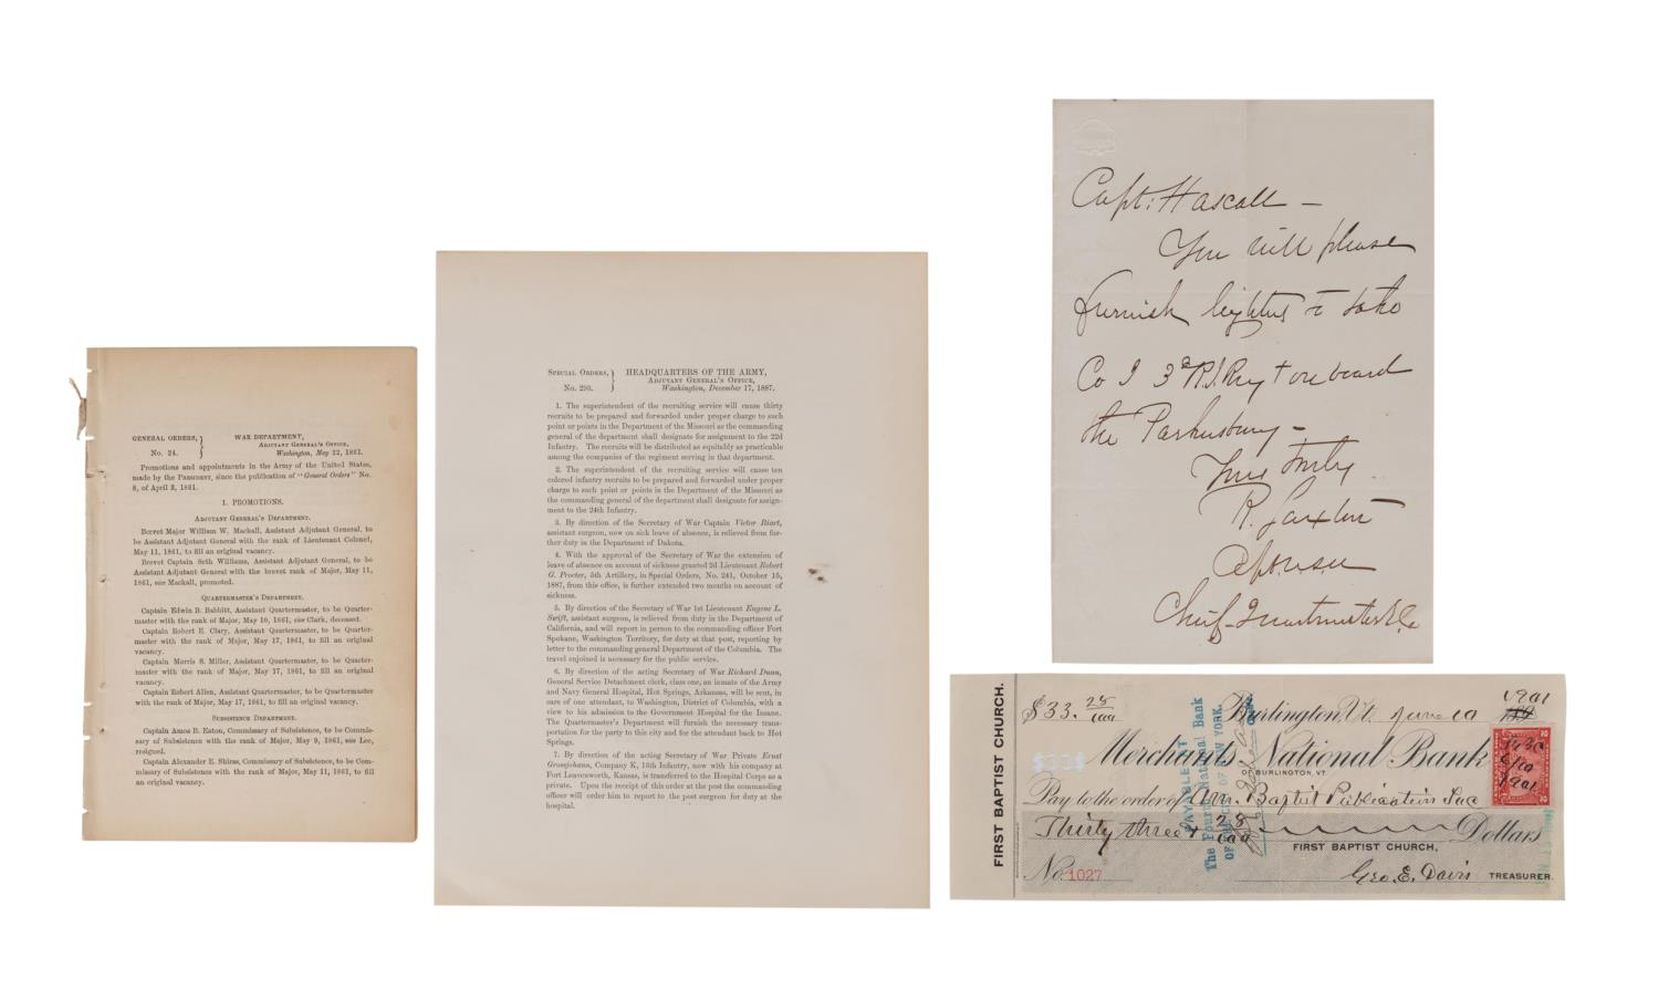 GENERAL ORDERS, } WAR DEPARTMENT,
ADJUTANT GENERAL'S OFFICE,
No. 24. Washington, May 22, 1861.
Promotions and appointments in the Army of the United States,
made by the PRESIDENT, since the publication of "General Orders" No.
8, of April 2, 1861.
I. PROMOTIONS.
ADJUTANT GENERAL'S DEPARTMENT.
Brevet Major William W. Mackall, Assistant Adjutant General, to
be Assistant Adjutant General with the rank of Lieutenant Colonel,
May 11, 1861, to fill an original vacancy.
Brevet Captain Seth Williams, Assistant Adjutant General, to be
Assistant Adjutant General with the brevet rank of Major, May 11,
1861, vice Mackall, promoted.
QUARTERMASTER'S DEPARTMENT.
Captain Edwin B. Babbitt, Assistant Quartermaster, to be Quarter-
master with the rank of Major, May 10, 1861, vice Clark, deceased.
Captain Robert E. Clary, Assistant Quartermaster, to be Quarter-
master with the rank of Major, May 17, 1861, to fill an original
vacancy.
Captain Morris S. Miller, Assistant Quartermaster, to be Quarter-
master with the rank of Major, May 17, 1861, to fill an original
vacancy.
Captain Robert Allen, Assistant Quartermaster, to be Quartermaster
with the rank of Major, May 17, 1861, to fill an original vacancy.
SUBSISTENCE DEPARTMENT.
Captain Amos B. Eaton, Commissary of Subsistence, to be Commis-
sary of Subsistence with the rank of Major, May 9, 1861, vice Lee,
resigned.
Captain Alexander E. Shiras, Commissary of Subsistence, to be Com-
missary of Subsistence with the rank of Major, May 11, 1861, to fill
an original vacancy.
SPECIAL ORDERS, } HEADQUARTERS OF THE ARMY,
ADJUTANT GENERAL'S OFFICE,
No. 293. Washington, December 17, 1887.
1. The superintendent of the recruiting service will cause thirty
recruits to be prepared and forwarded under proper charge to such
point or points in the Department of the Missouri as the commanding
general of the department shall designate for assignment to the 22d
Infantry. The recruits will be distributed as equitably as practicable
among the companies of the regiment serving in that department.
2. The superintendent of the recruiting service will cause ten
colored infantry recruits to be prepared and forwarded under proper
charge to such point or points in the Department of the Missouri as
the commanding general of the department shall designate for assign-
ment to the 24th Infantry.
3. By direction of the Secretary of War Captain Victor Biart,
assistant surgeon, now on sick leave of absence, is relieved from fur-
ther duty in the Department of Dakota.
4. With the approval of the Secretary of War the extension of
leave of absence on account of sickness granted 2d Lieutenant Robert
G. Proctor, 5th Artillery, in Special Orders, No. 241, October 15,
1887, from this office, is further extended two months on account of
sickness.
5. By direction of the Secretary of War 1st Lieutenant Eugene L.
Swift, assistant surgeon, is relieved from duty in the Department of
California, and will report in person to the commanding officer Fort
Spokane, Washington Territory, for duty at that post, reporting by
letter to the commanding general Department of the Columbia. The
travel enjoined is necessary for the public service.
6. By direction of the acting Secretary of War Richard Dunn,
General Service Detachment clerk, class one, an inmate of the Army
and Navy General Hospital, Hot Springs, Arkansas, will be sent, in
care of one attendant, to Washington, District of Columbia, with a
view to his admission to the Government Hospital for the Insane.
The Quartermaster's Department will furnish the necessary trans-
portation for the party to this city and for the attendant back to Hot
Springs.
7. By direction of the acting Secretary of War Private Ernst
Grossjohann, Company K, 18th Infantry, now with his company at
Fort Leavenworth, Kansas, is transferred to the Hospital Corps as a
private. Upon the receipt of this order at the post the commanding
officer will order him to report to the post surgeon for duty at the
hospital.
Capt: Hascall –
You will please
furnish lighters to take
Co I 3d R.I. Reg t on board
the Parkersburg –
Yours truly
R. Saxton
Capt
Chief Quartermaster E.C.
FIRST BAPTIST CHURCH.
$33. 28/100 Burlington, Vt. June 10 1901
Merchants National Bank
OF BURLINGTON, VT.
Pay to the order of Am. Baptist Publication Soc
Thirty three + 28/100 Dollars
FIRST BAPTIST CHURCH,
No. 1027 Geo. E. Davis TREASURER.
PAYABLE AT
The Fourth National Bank
OF THE CITY OF NEW YORK.